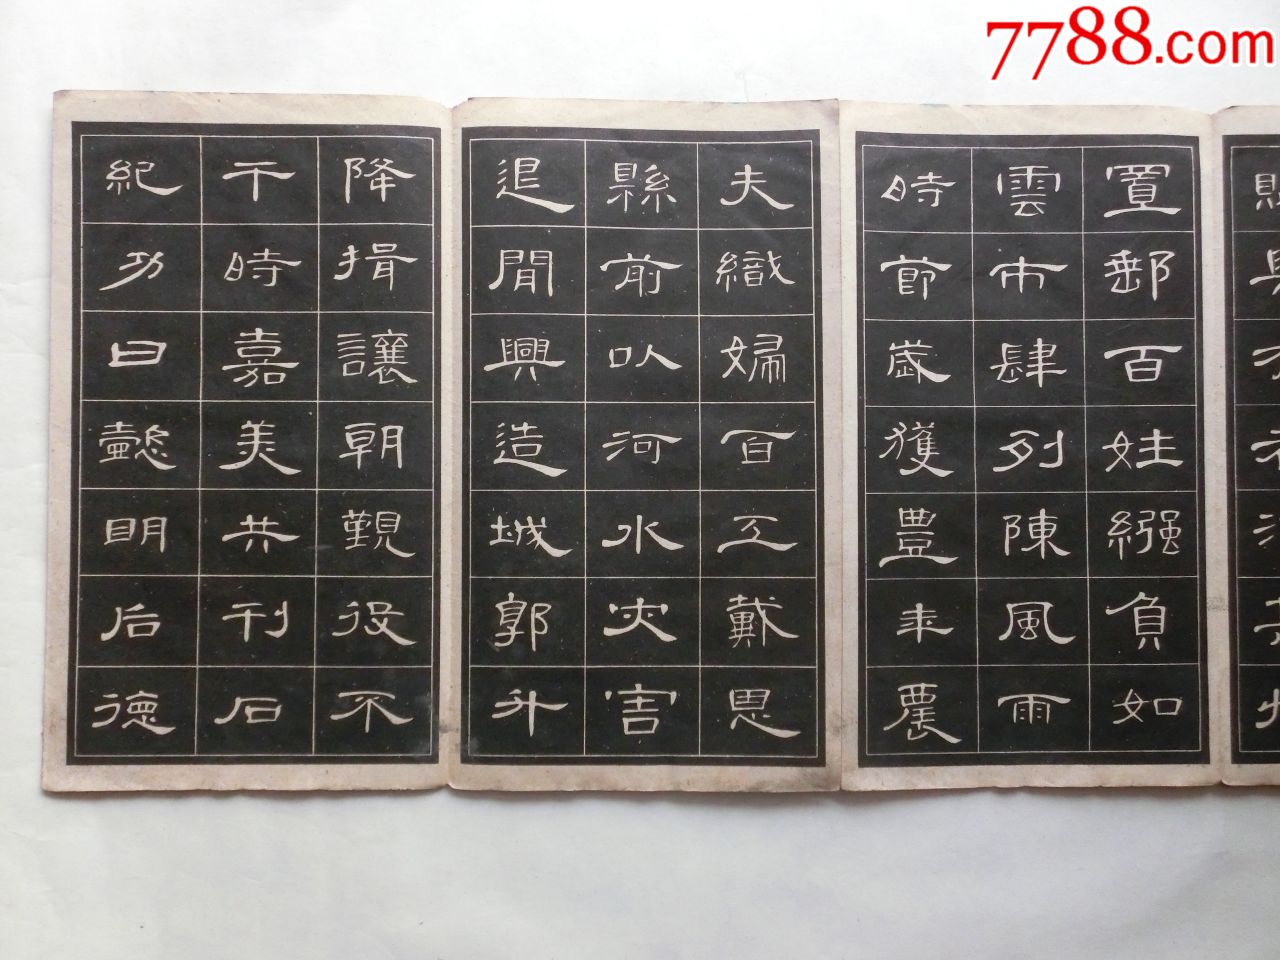 7788.com
置郵百姓繦負如
雲市肆列陳風雨
時節歲獲豐年農
夫織婦百工戴恩
縣前以河水灾害
退閒興造城郭升
降揖讓朝覲役不
干時嘉美共刊石
紀功曰懿明后德